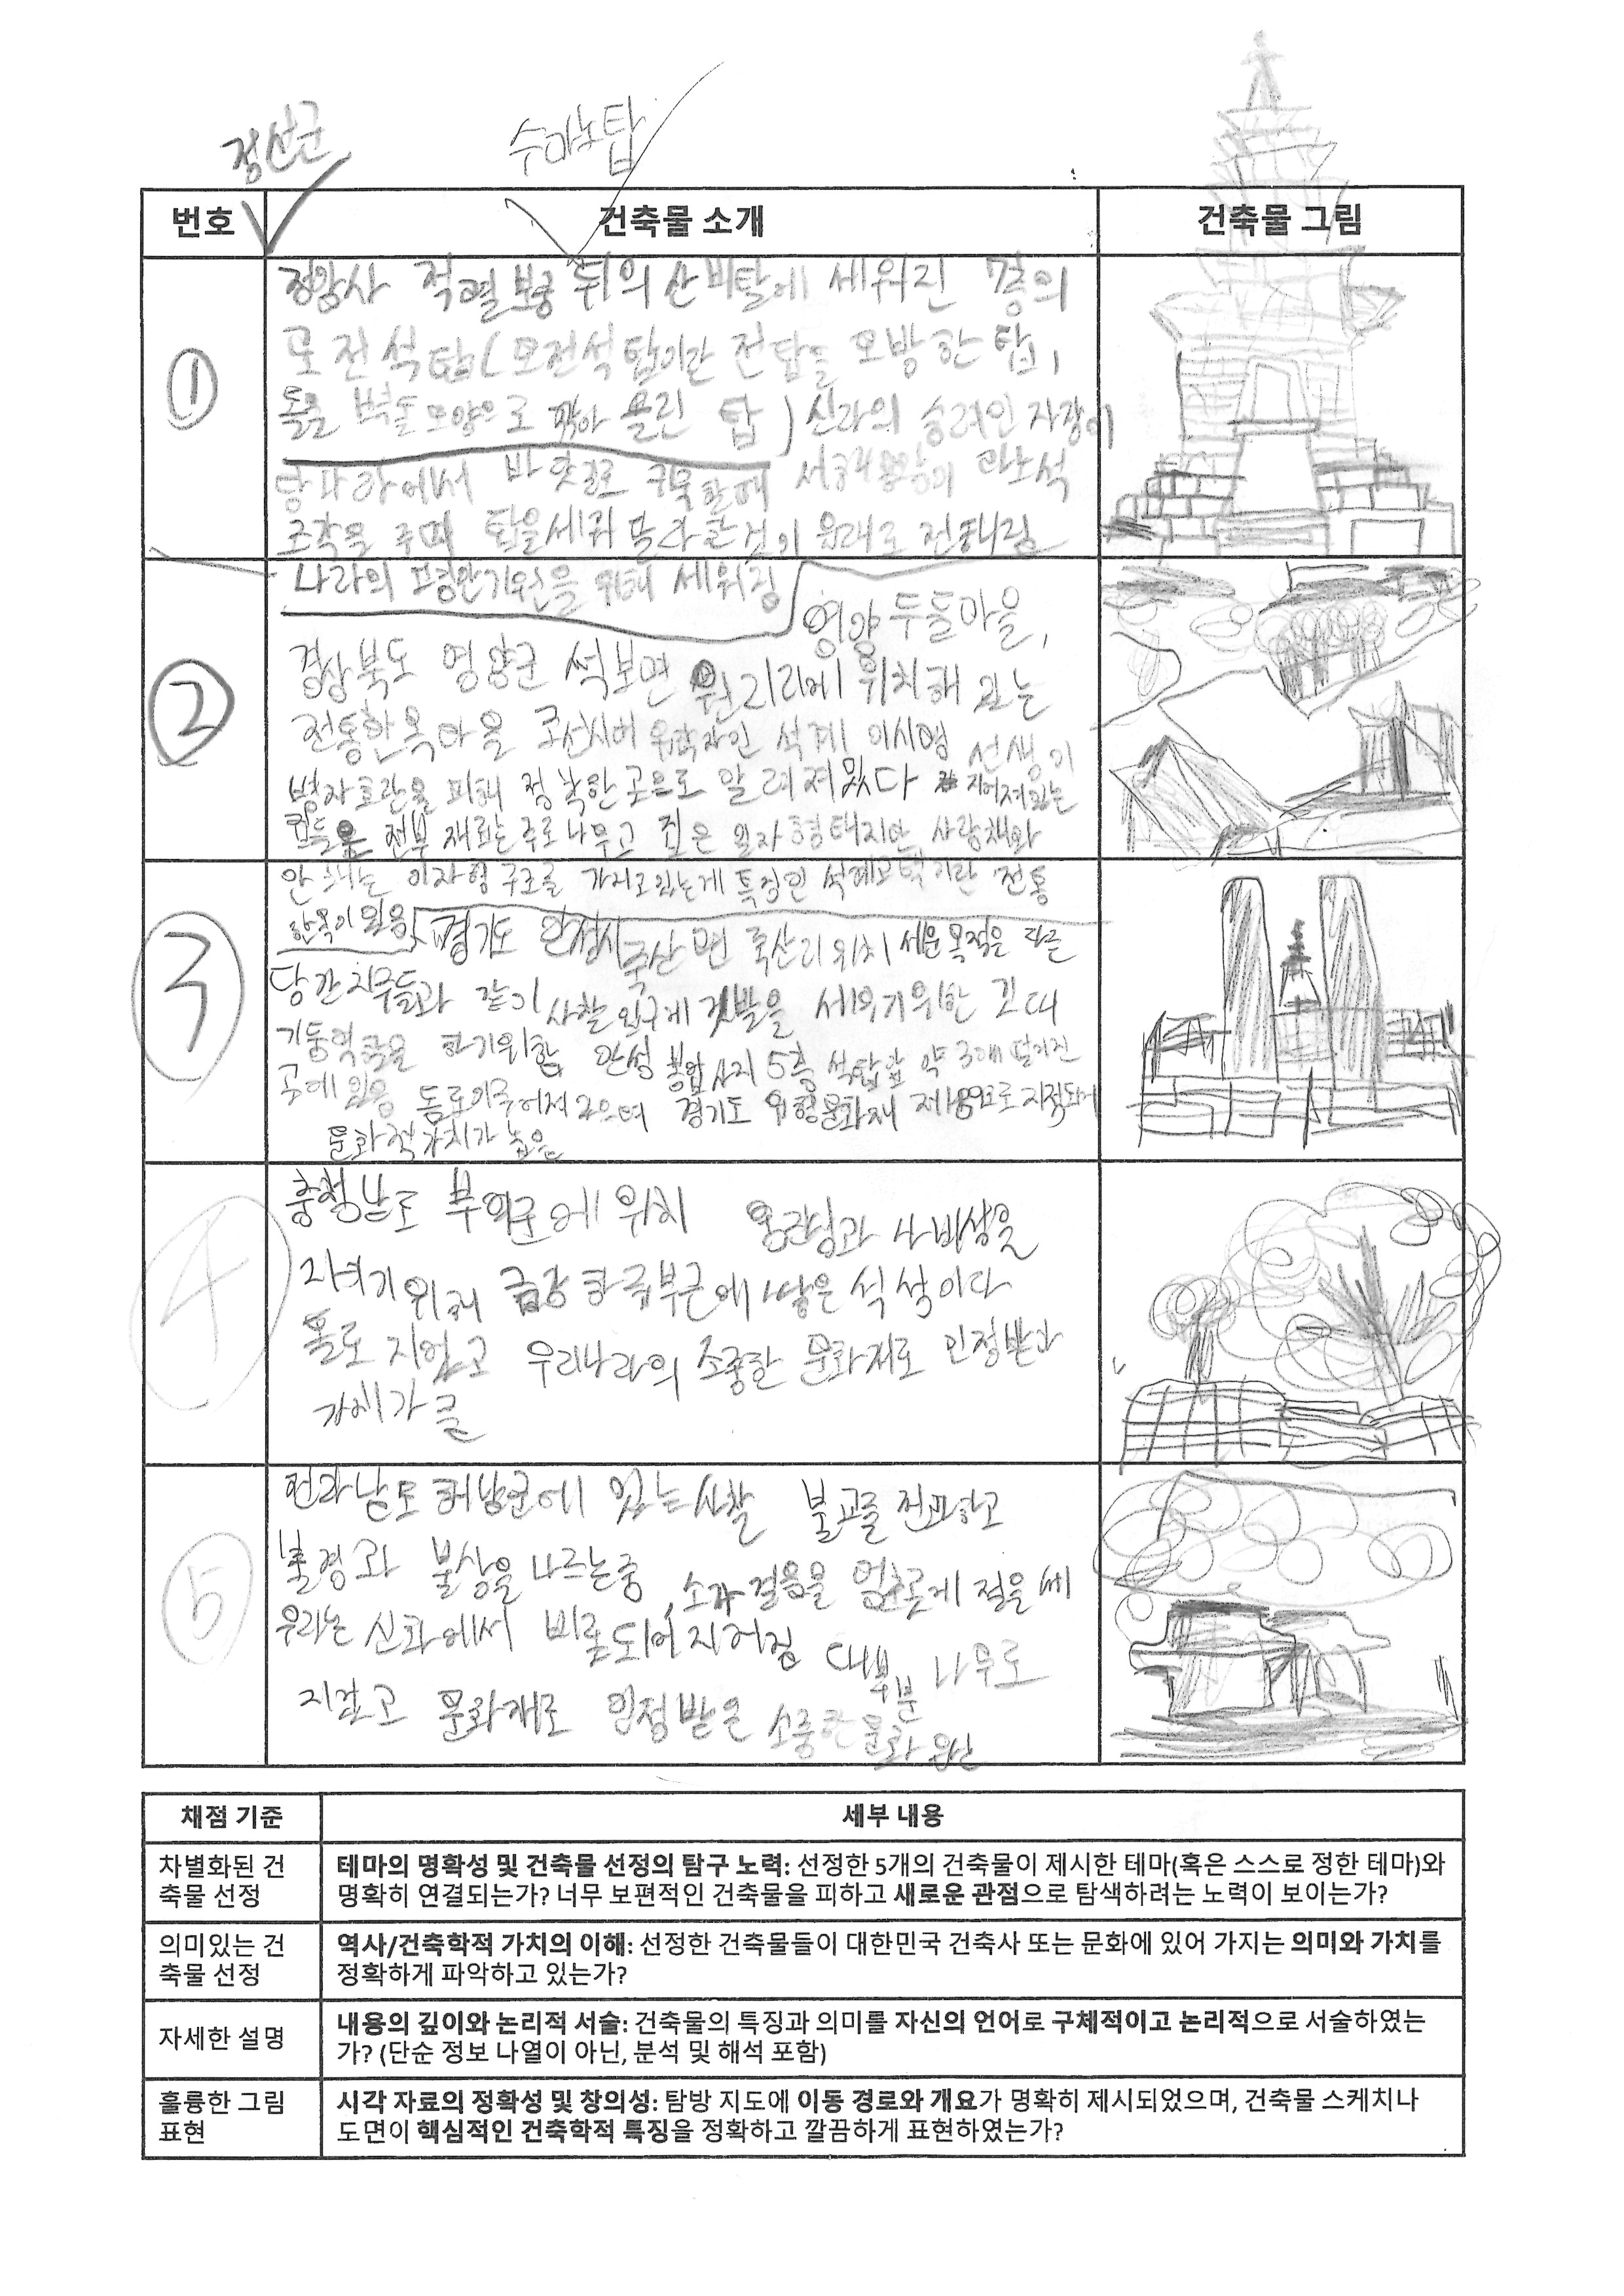 정선군
수마노탑
번호 건축물 소개 건축물 그림
① 정암사 적멸보궁 뒤의 산비탈에 세워진 7층의
모전석탑(모전석탑이란 전탑을 모방한 탑,
돌을 벽돌모양으로 깎아 올린 탑) 신라의 승려인 자장이
당나라에서 바닷길로 귀국할때 서해용왕이 마노석
조각을 주며 탑을세워 달라한것이 유래로 전해내림
나라의 평안기원을 위해 세워짐
② 영양 두들마을,
경상북도 영양군 석보면 원리리에 위치해 있는
전통한옥마을 조선시대 유학자인 석계 이시명 선생이
병자호란을 피해 정착한 곳으로 알려져있다 지어져있는
집들은 전부 재료는 주로나무고 집은 일자형태지만 사랑채와
안채는 이자형구조를 가지고있는게 특징인 석계고택이란 전통
한옥이 있음
3 경기도 안성시 죽산면 죽산리위치 세운목적은 다른
당간지주들과 같이 사찰입구에 깃발을 세우기위한 긴대
기둥역할을 하기위함 안성 봉업사지 5층 석탑앞 약 3에 떨어진
곳에 있음 돌로이루어져있으며 경기도 유형문화재 제189호로지정되어
문화적가치가 높음
4 충청남도 부여군에 위치 웅진성과 사비성을
지키기위해 금강하류부근에 쌓은 석성이다
돌로 지었고 우리나라의 소중한 문화재로 인정받아
가치가 큼
5 전라남도해남군에 있는사찰 불교를전파하고
불경과 불상을나르는중, 소가 걸음을 멈춘곳에 절을세
우라는 신화에서 비롯되어지어짐 대부분 나무로
지었고 문화재로 인정받은 소중한문화유산
채점 기준 세부 내용
차별화된 건
축물 선정
테마의 명확성 및 건축물 선정의 탐구 노력: 선정한 5개의 건축물이 제시한 테마(혹은 스스로 정한 테마)와
명확히 연결되는가? 너무 보편적인 건축물을 피하고 새로운 관점으로 탐색하려는 노력이 보이는가?
의미있는 건
축물 선정
역사/건축학적 가치의 이해: 선정한 건축물들이 대한민국 건축사 또는 문화에 있어 가지는 의미와 가치를
정확하게 파악하고 있는가?
자세한 설명
내용의 깊이와 논리적 서술: 건축물의 특징과 의미를 자신의 언어로 구체적이고 논리적으로 서술하였는
가? (단순 정보 나열이 아닌, 분석 및 해석 포함)
훌륭한 그림
표현
시각 자료의 정확성 및 창의성: 탐방 지도에 이동 경로와 개요가 명확히 제시되었으며, 건축물 스케치나
도면이 핵심적인 건축학적 특징을 정확하고 깔끔하게 표현하였는가?